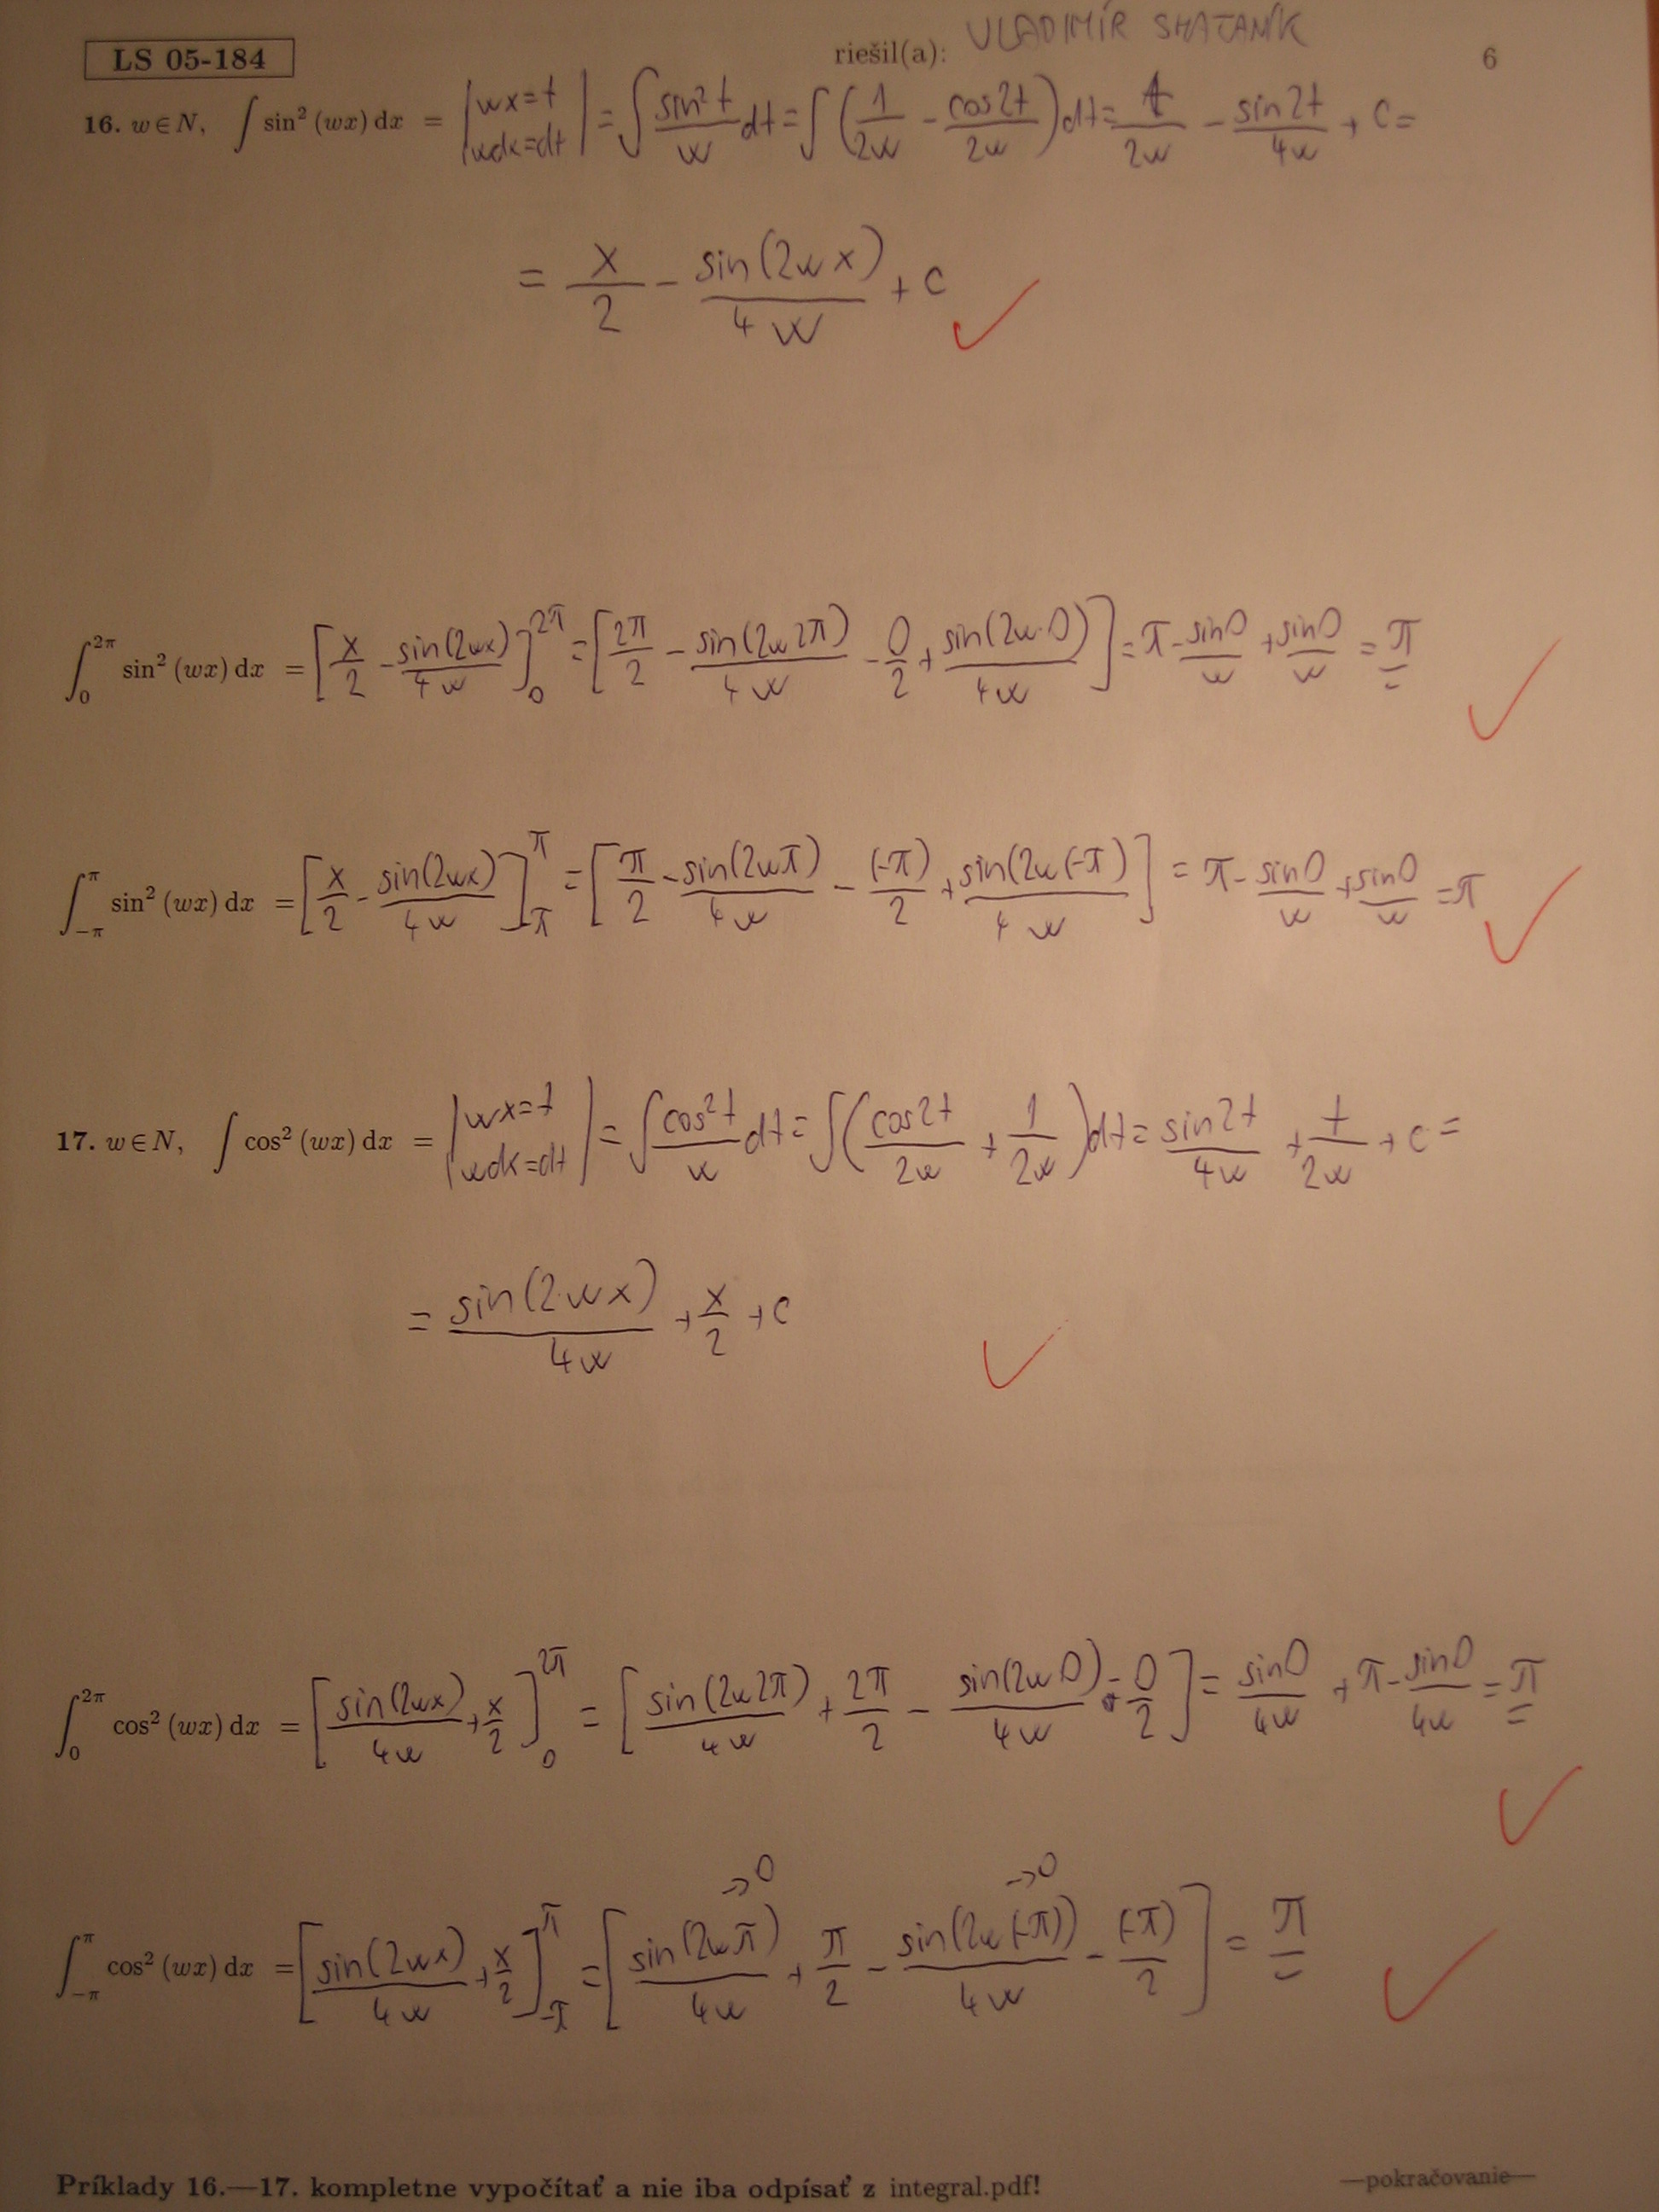 LS 05-184 riešil(a): VLADIMÍR SMATANÍK 6
16. w ∈ N, ∫ sin² (wx) dx = | wx=t wdx=dt | = ∫ sin²t/w dt = ∫ (1/2w - cos2t/2w) dt = t/2w - sin2t/4w + c =
= x/2 - sin(2wx)/4w + c ✓
∫₀^{2π} sin² (wx) dx = [x/2 - sin(2wx)/4w]₀^{2π} = [2π/2 - sin(2w2π)/4w - 0/2 + sin(2w·0)/4w] = π - sin0/w + sin0/w = π ✓
∫_{-π}^{π} sin² (wx) dx = [x/2 - sin(2wx)/4w]_{-π}^{π} = [π/2 - sin(2wπ)/4w - (-π)/2 + sin(2w(-π))/4w] = π - sin0/w + sin0/w = π ✓
17. w ∈ N, ∫ cos² (wx) dx = | wx=t wdx=dt | = ∫ cos²t/w dt = ∫ (cos2t/2w + 1/2w) dt = sin2t/4w + t/2w + c =
= sin(2·wx)/4w + x/2 + c ✓
∫₀^{2π} cos² (wx) dx = [sin(2wx)/4w + x/2]₀^{2π} = [sin(2w2π)/4w + 2π/2 - sin(2w0)/4w - 0/2] = sin0/4w + π - sin0/4w = π ✓
→0 →0
∫_{-π}^{π} cos² (wx) dx = [sin(2wx)/4w + x/2]_{-π}^{π} = [sin(2wπ)/4w + π/2 - sin(2w(-π))/4w - (-π)/2] = π ✓
Príklady 16.—17. kompletne vypočítať a nie iba odpísať z integral.pdf! —pokračovanie—